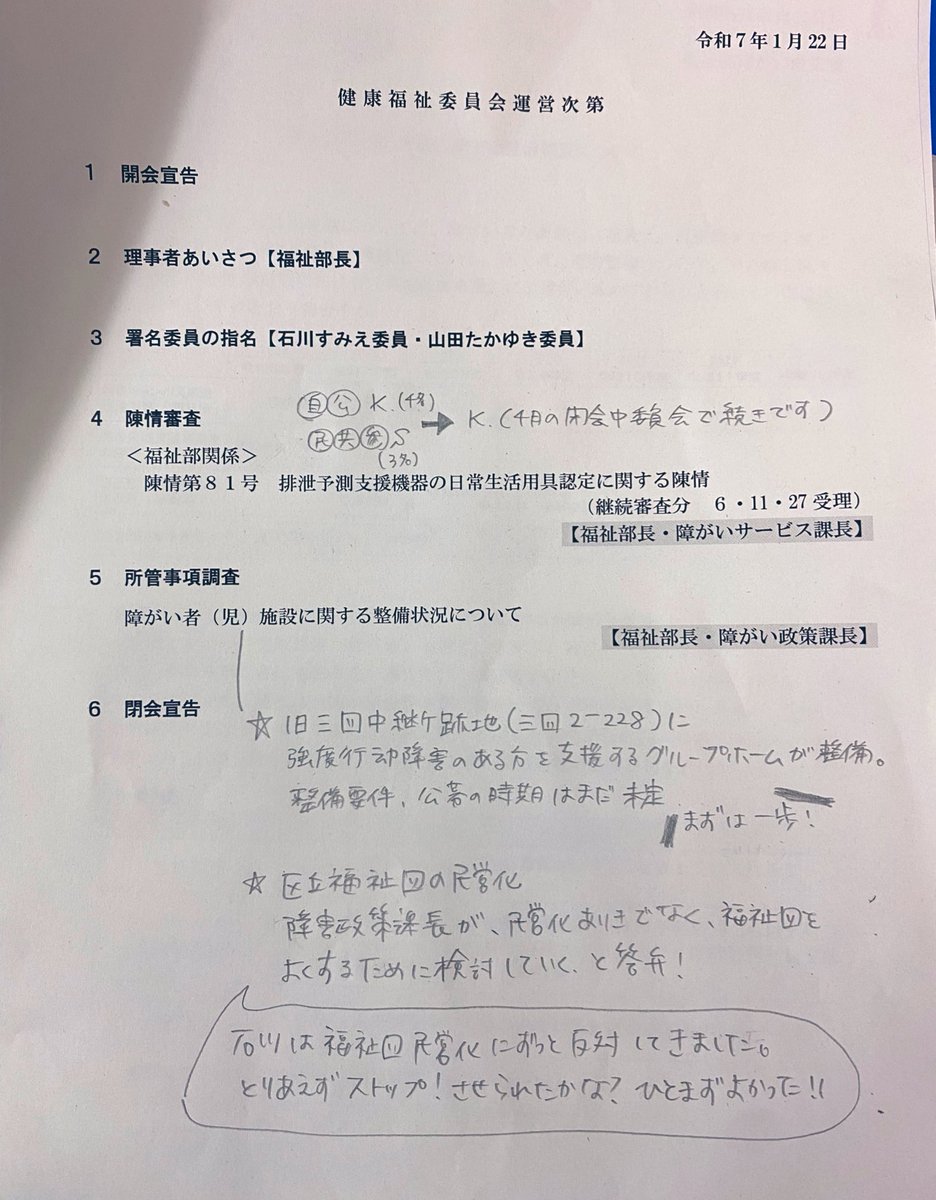 令和7年1月22日
健康福祉委員会運営次第
1 開会宣告
2 理事者あいさつ【福祉部長】
3 署名委員の指名【石川すみえ委員・山田たかゆき委員】
自 公 K.(4名)
→ K.(4月の閉会中委員会で続きです)
4 陳情審査
民 共 S
(3名)
<福祉部関係>
陳情第81号 排泄予測支援機器の日常生活用具認定に関する陳情
(継続審査分 6・11・27受理)
【福祉部長・障がいサービス課長】
5 所管事項調査
障がい者(児)施設に関する整備状況について
【福祉部長・障がい政策課長】
6 閉会宣告
☆ 旧三田中継所跡地(三田2-228)に
強度行動障害のある方を支援するグループホームが整備。
整備要件、公募の時期はまだ未定
まずは一歩!
☆ 区立福祉園の民営化
障害政策課長が、民営化ありきでなく、福祉園を
よくするために検討していく、と答弁!
石川は福祉園民営化にずっと反対してきました。
とりあえずストップ!させられたかな?ひとまずよかった!!